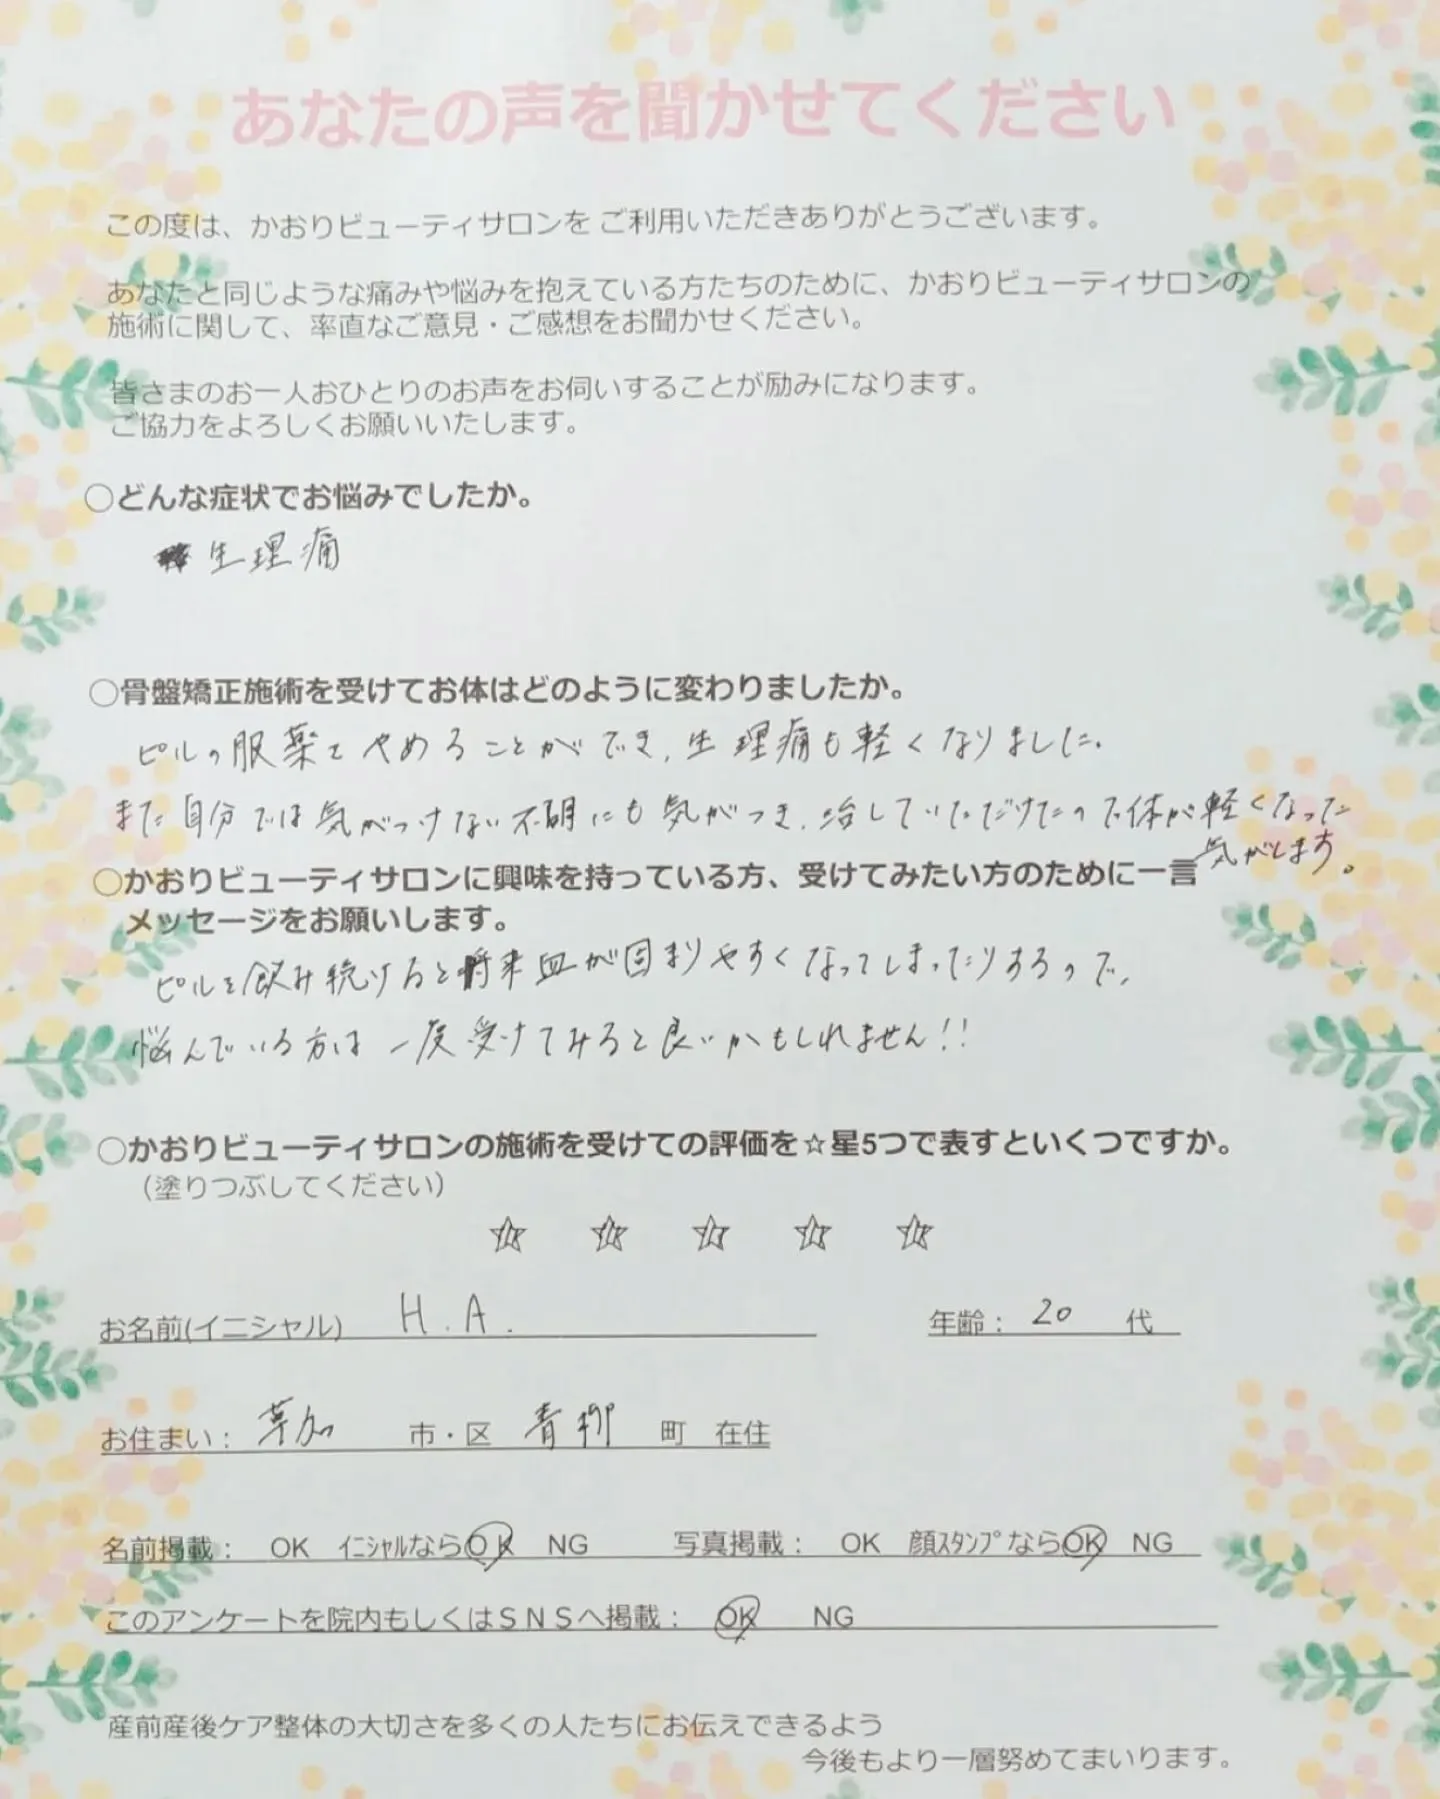 あなたの声を聞かせてください
この度は、かおりビューティサロンを ご利用いただきありがとうございます。
あなたと同じような痛みや悩みを抱えている方たちのために、かおりビューティサロンの
施術に関して、率直なご意見・ご感想をお聞かせください。
皆さまのお一人おひとりのお声をお伺いすることが励みになります。
ご協力をよろしくお願いいたします。
○どんな症状でお悩みでしたか。
生理痛
○骨盤矯正施術を受けてお体はどのように変わりましたか。
ピルの服薬をやめることができ、生理痛も軽くなりました。
また自分では気がつけない不調にも気がつき、治していただけたので体が軽くなった
気がします。
○かおりビューティサロンに興味を持っている方、受けてみたい方のために一言
メッセージをお願いします。
ピルを飲み続けると将来血が固まりやすくなってしまったりするので、
悩んでいる方は一度受けてみると良いかもしれません!!
○かおりビューティサロンの施術を受けての評価を☆星5つで表すといくつですか。
（塗りつぶしてください）
☆ ☆ ☆ ☆ ☆
お名前(イニシャル) H.A. 年齢： 20 代
お住まい： 草加 市・区 青柳 町 在住
名前掲載： OK ｲﾆｼｬﾙならOK NG 写真掲載： OK 顔ｽﾀﾝﾌﾟならOK NG
このアンケートを院内もしくはＳＮＳへ掲載： OK NG
産前産後ケア整体の大切さを多くの人たちにお伝えできるよう
今後もより一層努めてまいります。